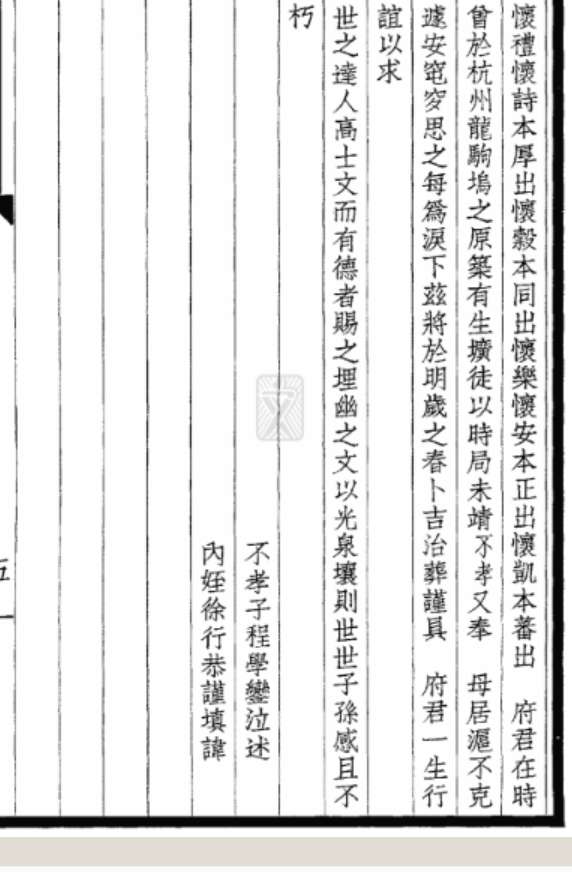 懷禮懷詩本厚出懷穀本同出懷樂懷安本正出懷凱本蕃出　府君在時
曾於杭州龍駒塢之原築有生壙徒以時局未靖不孝又奉　母居滬不克
遽安窀穸思之每爲淚下茲將於明歲之春卜吉治葬謹具　府君一生行
誼以求
世之達人高士文而有德者賜之埋幽之文以光泉壤則世世子孫感且不
朽
不孝子程學鑾泣述
內姪徐行恭謹填諱
五